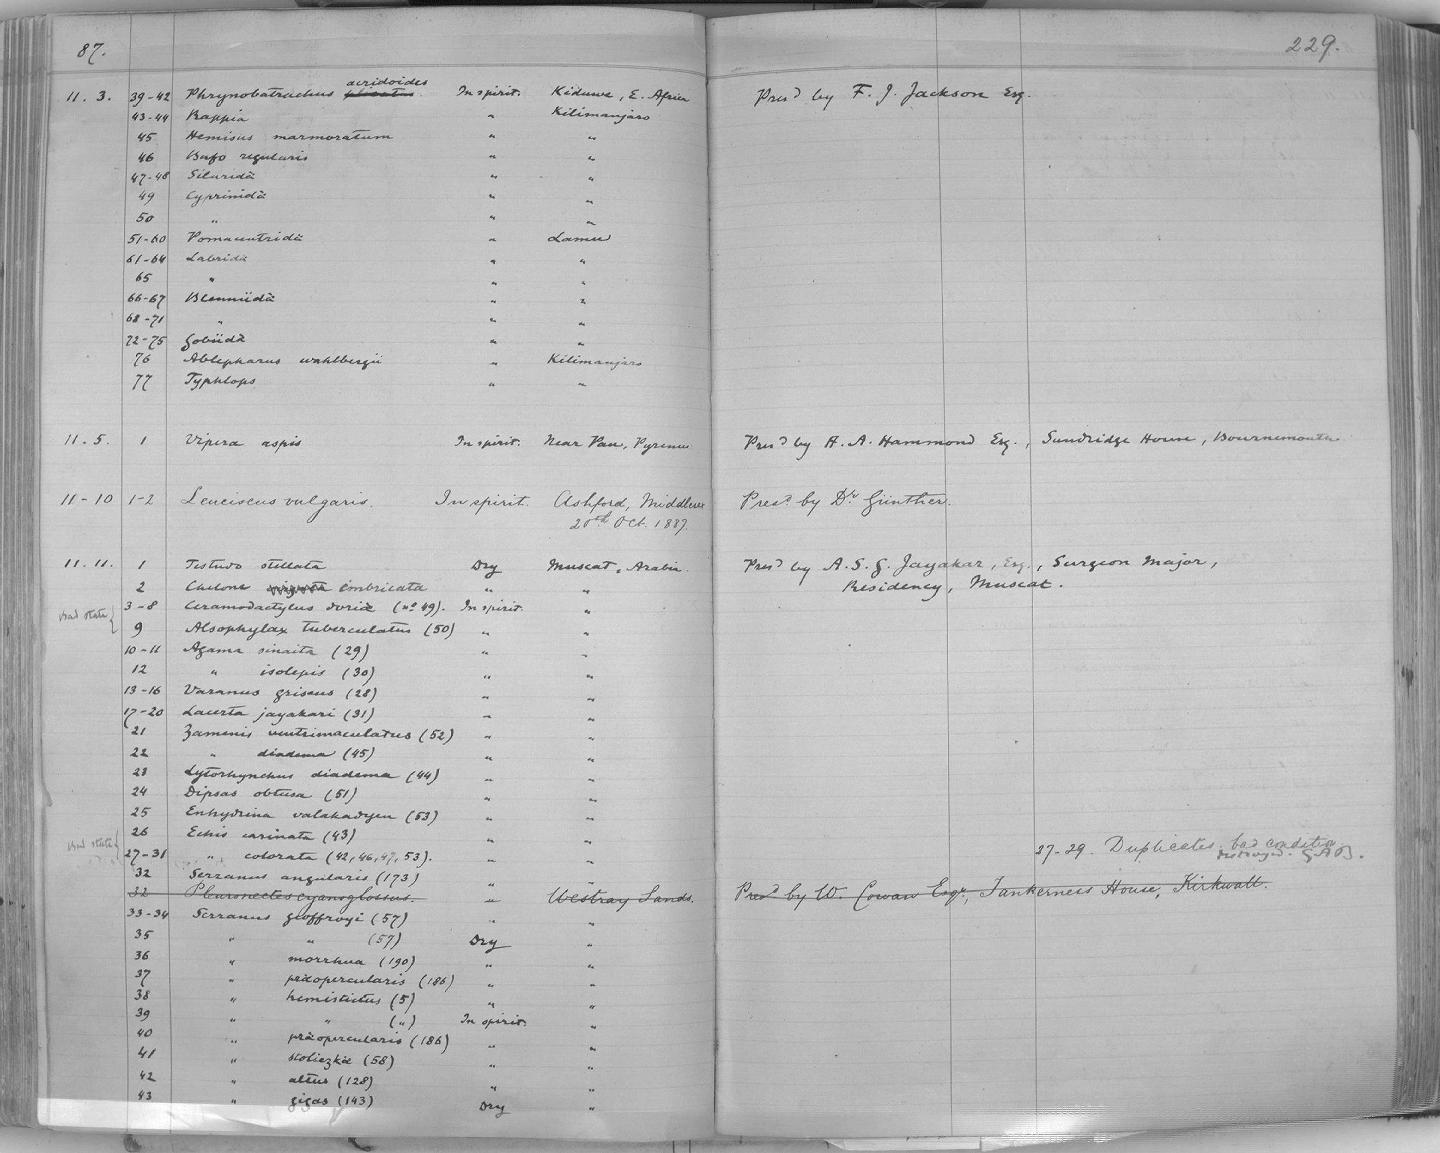 87.
229.
11. 3. 39-42 Phrynobatrachus plicatus acridoides In spirit. E. Africa Pres.d by F. J. Jackson Esq.
43-44 Rappia " Kilimanjaro
45 Hemisus marmoratum " "
46 Bufo regularis " "
47-48 Siluridä " "
49 Cyprinidä " "
50 " " "
51-60 Pomacentridä " Lamu
61-64 Labridä " "
65 " " "
66-67 Blenniidä " "
68-71 " " "
72-75 Gobiidä " "
76 Ablepharus wahlbergii " Kilimanjaro
77 Typhlops " "
11. 5. 1 Vipera aspis In spirit. Near Pau, Pyrenees Pres.d by A. A. Hammond Esq., Sundridge House, Bournemouth
11-10 1-2 Leuciscus vulgaris. In spirit. Ashford, Middlesex Pres.d by Dr. Günther.
20th Oct. 1887.
11. 11. 1 Testudo stellata Dry Muscat, Arabia. Pres.d by A. S. G. Jayakar, Esq., Surgeon Major,
2 Chelone imbricata " " Residency, Muscat.
Bad state { 3-8 Ceramodactylus doriä (no 49). In spirit. "
9 Alsophylax tuberculatus (50) " "
10-11 Agama sinaita (29) " "
12 " isolepis (30) " "
13-16 Varanus griseus (28) " "
17-20 Lacerta jayakari (31) " "
21 Zamenis ventrimaculatus (52) " "
22 " diadema (45) " "
23 Lytorhynchus diadema (44) " "
24 Dipsas obtusa (51) " "
25 Enhydrina valakadyen (53) " "
26 Echis carinata (43) " "
Bad state { 27-31 " colorata (42, 46, 47, 53). " " 27-29. Duplicates. bad condition
destroyed. G.A.B.
32 Serranus angularis (173) " "
32 Pleuronectes cyanoglossus. " Westray Sands. Pres.d by W. Cowan Esqr., Tankerness House, Kirkwall.
33-34 Serranus geoffroyi (57) " "
35 " " (57) Dry "
36 " morrhua (190) " "
37 " präopercularis (186) " "
38 " hemistictus (5) " "
39 " " (") In spirit. "
40 " präopercularis (186) " "
41 " stoliczkä (58) " "
42 " altus (128) " "
43 " gigas (143) Dry "